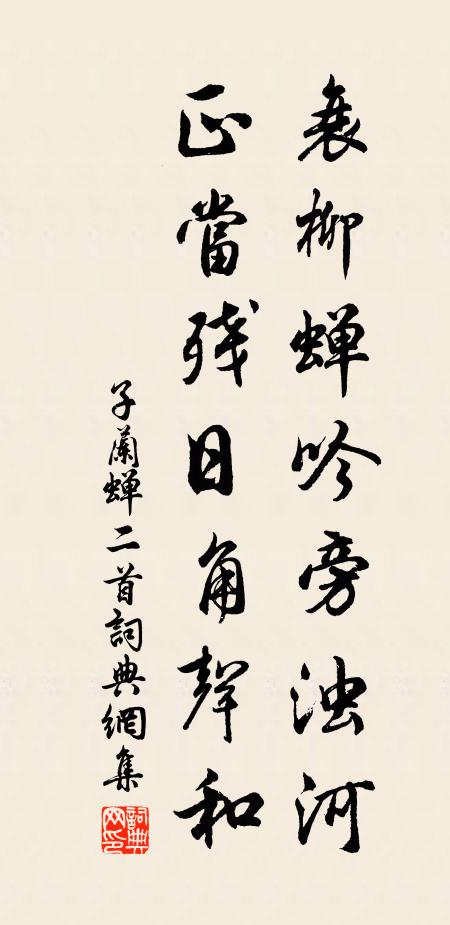 衰柳蝉吟旁浊河
正當残日角聲和
子蘭蝉二首詞典網集
詞典網印